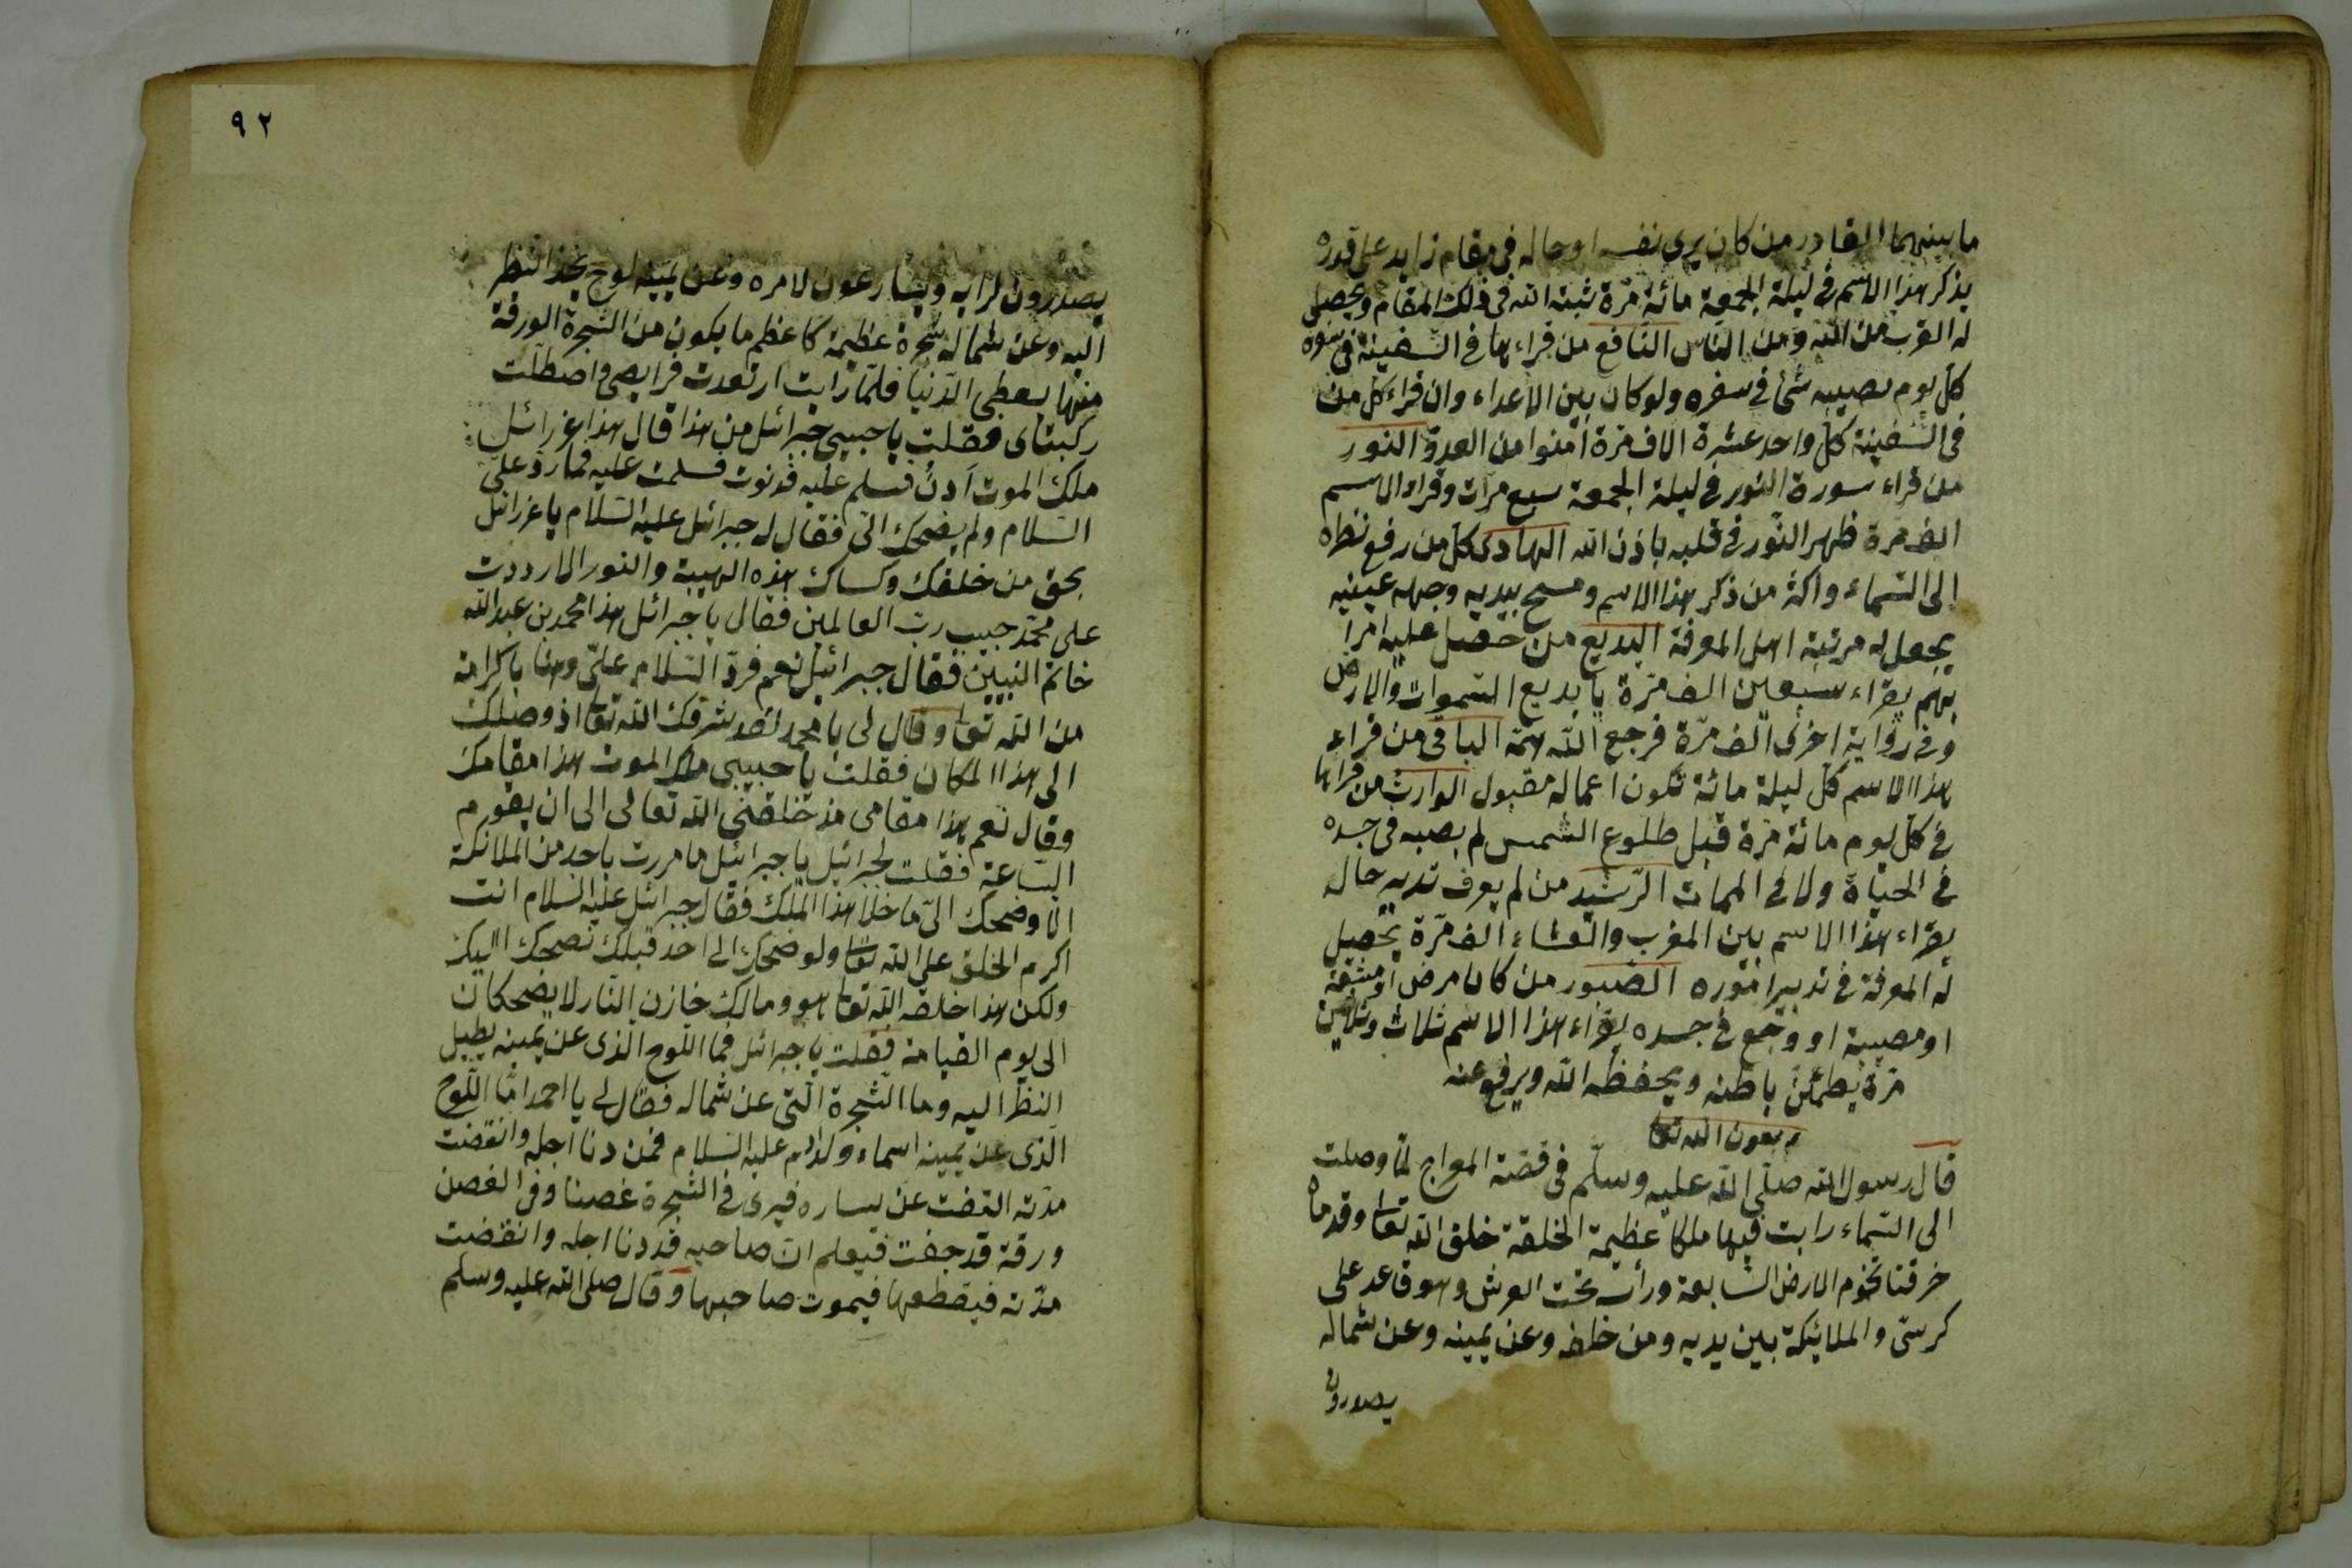 ما بينهما القادر من كان يرى نفسه او حاله فى مقام زايد على قدره
يذكر هذا الاسم فى ليلة الجمعة مائة مرّة ثبته الله فى ذلك المقام ويحصل
له القرب من الله ومن الناس النافع من قراءها فى السفينة فى
كلّ يوم يصيبه شئ فى سفره ولو كان بين الاعداء وان قراء كلّ من
فى السّفينة كلّ واحد عشرة الاف مرّة امنوا من العدوّ النور
من قراء سورة النّور فى ليلة الجمعة سبع مرّات وقراء الاسم
الف مرة ظهر النّور فى قلبه باذن الله الهادى كلّ من رفع نظره
الى السّماء واكثر من ذكر هذا الاسم ومسح بيديه وجهه عينيه
يجعل له مرتبة اهل المعرفة البديع من حصل عليه امرا
يهم يقراء سبعين الف مرّة يا بديع السّموات والارض
وفى رواية اخرى الف مرّة فرجع الله همّه الباقى من قراء
هذا الاسم كلّ ليلة مائة تكون اعماله مقبول الوارث من قراءها
فى كلّ يوم مائة مرّة قبل طلوع الشّمس لم يصبه فى جسده
فى الحياة ولا فى الممات الرّشيد من لم يعرف تدبير حاله
يقراء هذا الاسم بين المغرب والعشاء الف مرّة يحصل
له المعرفة فى تدبير اموره الصّبور من كان مرض او مشقة
او مصيبة او وجع فى جسده يقراء هذا الاسم ثلاث وثلاثين
مرّة يطمئنّ باطنه ويحفظه الله ويرفع عنه
م بعون الله تعا
قال رسول الله صلّى الله عليه وسلّم فى قصّة المعراج لمّا وصلت
الى السّماء رايت فيها ملكا عظيمة الخلقة خلق الله تعا وقدماه
خرقتا تخوم الارض السّابعة ورأسه تحت العرش وهو قاعد على
كرسىّ والملائكة بين يديه ومن خلفه وعن يمينه وعن شماله
يصدرون
٩٢
يصدرون لرايه ويسارعون لامره وعن يمينه لوح النظر
اليه وعن شماله شجرة عظيمة كاعظم ما يكون من الشّجرة الورقة
منها يعطى الدّنيا فلمّا رايت ارتعدت فرايصى واصطلّت
ركبتاى فقلت يا حبيبى جبرائل من هذا قال هذا عزرائل
ملك الموت ادنُ فسلم عليه فدنوت فسلمت عليه فما ردّ علىّ
السّلام ولم يضحك الىّ فقال له جبرائل عليه السّلام يا عزرائل
بحق من خلقك وكساك هذه الهيبة والنور الا رددت
على محمّد حبيب ربّ العالمين فقال يا جبرائل هذا محمد بن عبد الله
خاتم النبيّين فقال جبرائيل نعم فردّ السّلام علىّ وهنا بالكرامة
من الله تعا وقال لى يا محمد لقد شرفك الله تعا اذ وصلك
الى هذا المكان فقلت يا حبيبى ملك الموت هذا مقامك
وقال نعم هذا مقامى مذ خلقنى الله تعالى الى ان يقوم
السّاعة فقلت لجبرائيل يا جبرائيل ما مررت باحد من الملائكة
الا وضحك الىّ ما خلا هذا الملك فقال جبرائل عليه السلام انت
اكرم الخلق على الله تعا ولو ضحك الى احد قبلك لضحك اليك
ولكن هذا خلقه الله تعا هو ومالك خازن النّار لا يضحكان
الى يوم القيامة فقلت يا جبرائل فما اللّوح الّذى عن يمينه يطيل
النظر اليه وما الشّجرة الّتى عن شماله فقال لى يا احمد امّا اللّوح
الّذى عن يمينه اسماء ولد ادم عليه السّلام فمن دنا اجله وانقضت
مدّته التفت عن يساره فيرى فى الشّجرة غصنا وفى الغصن
ورقة قد جفّت فيعلم انّ صاحبه قد دنا اجله وانقضت
مدّته فيقطعها فيموت صاحبها وقال صلى الله عليه وسلم